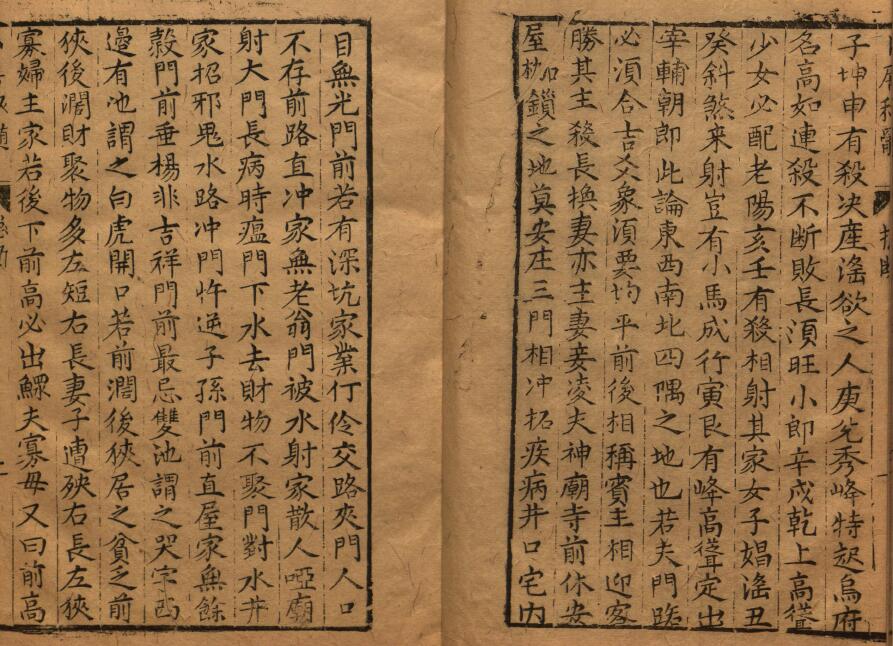 子坤申有殺决產滛欲之人庚兊秀峰特起烏府
名高如連殺不断敗長湏旺小郎辛戌乾上高聳
少女必配老陽亥壬有殺相射其家女子娼滛丑
癸斜煞来射豈有小馬成行寅艮有峰高聳定出
宰輔朝郎此論東西南北四隅之地也若夫門路
必湏合吉爻象湏要均平前後相稱賓主相迎客
勝其主殺長換妻亦主妻妾凌夫神廟寺前休安
屋杻鎖之地莫安庄三門相冲招疾病井口宅内
目無光門前若有深坑家業伶仃交路夾門人口
不存前路直冲家無老翁門被水射家散人啞廟
射大門長病時瘟門下水去財物不聚門對水井
家招邪鬼水路冲門忤逆子孫門前直屋家無餘
穀門前垂楊非吉祥門前最忌雙池謂之哭字西
邉有池謂之白虎開口若前濶後狹居之貧乏前
狹後濶財聚物多左短右長妻子遭殃右長左狹
寡婦主家若後下前高必出鰥夫寡母又曰前高